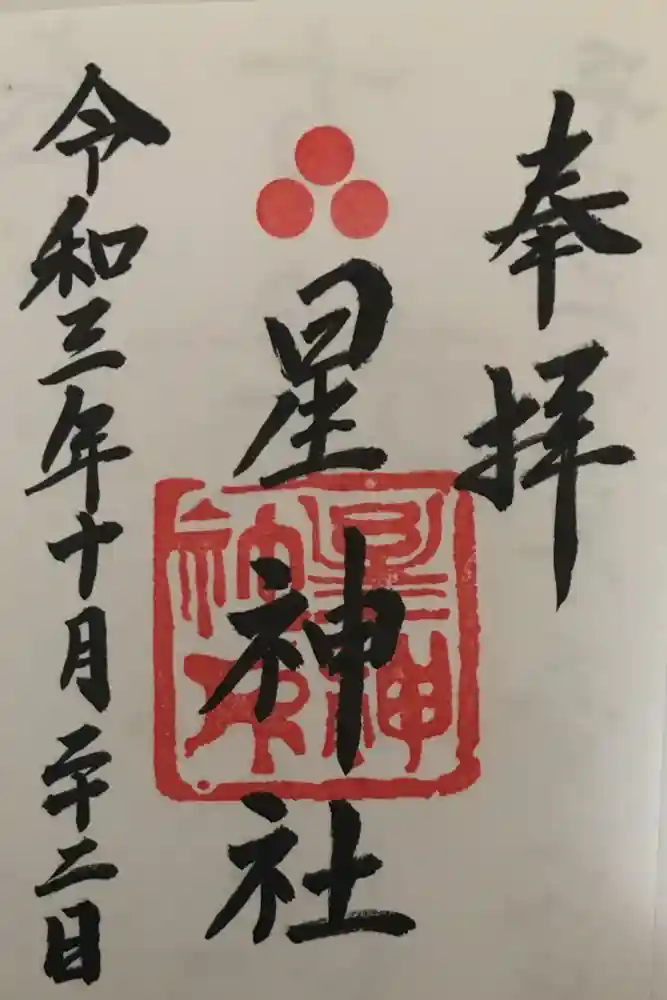 奉拝
星神社
令和三年十月二十二日